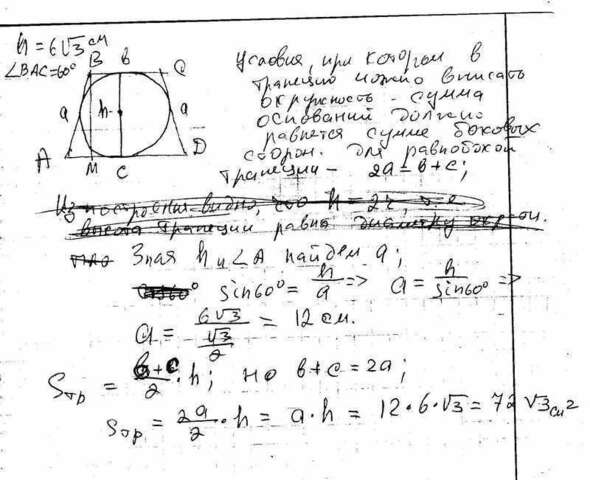 h = 6√3 см
∠BAC = 60°
B в Q
a h a
A M C D
Условия, при котором в
трапецию можно вписать
окружность - сумма
оснований должна
равнется сумме боковых
сторон. для равнобокой
трапеции - 2a = в + c;
Из построения видно, что h = 2r, т.е
высота трапеции равна диаметру окр-ти.
Зная h и ∠A найдем a;
sin60° = h/a => a = h/sin60° =>
a = 6√3/(√3/2) = 12 см.
Sтр = (в+c)/2 · h; но в + c = 2a;
Sтр = 2a/2 · h = a · h = 12 · 6 · √3 = 72√3 см²